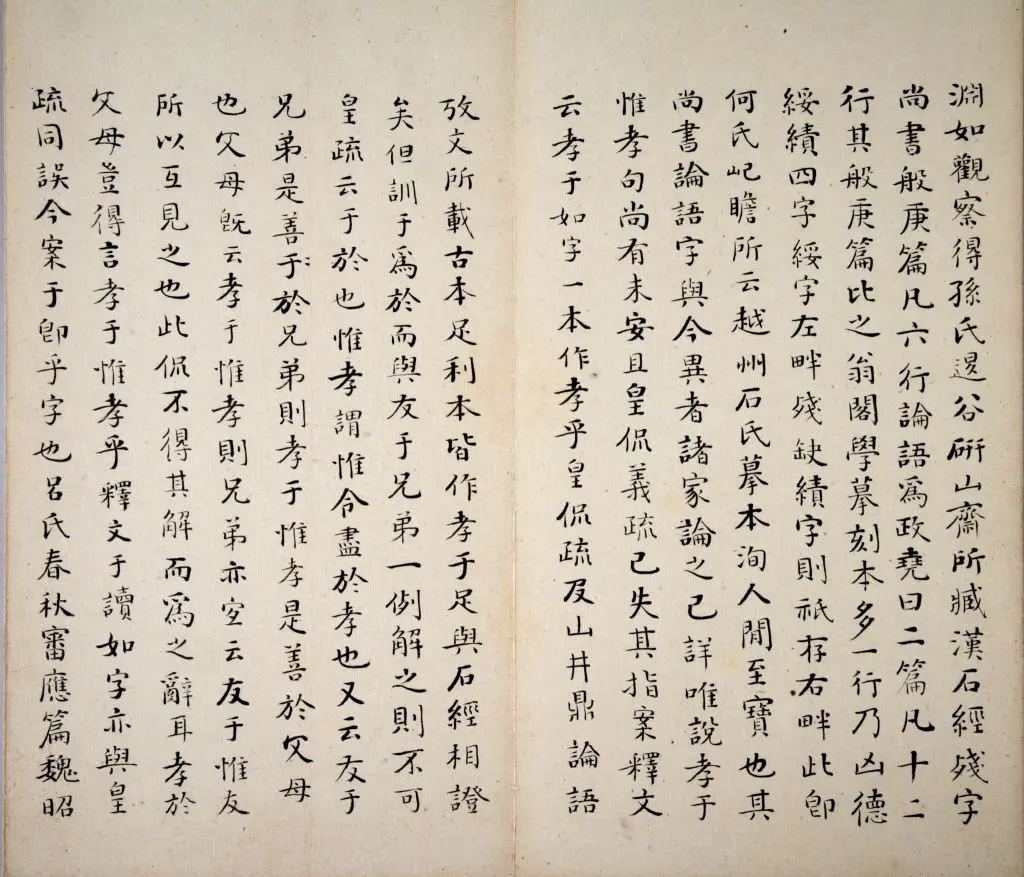 淵如觀察得孫氏退谷研山齋所臧漢石經殘字
尚書般庚篇凡六行論語爲政堯曰二篇凡十二
行其般庚篇比之翁閣學摹刻本多一行乃凶德
綏績四字綏字左畔殘缺績字則祇存右畔此卽
何氏屺瞻所云越州石氏摹本洵人閒至寶也其
尚書論語字與今異者諸家論之已詳唯說孝于
惟孝句尚有未安且皇侃義疏已失其指案釋文
云孝于如字一本作孝乎皇侃疏及山井鼎論語
攷文所載古本足利本皆作孝于足與石經相證
矣但訓于爲於而與友于兄弟一例解之則不可
皇疏云于於也惟孝謂惟令盡於孝也又云友于
兄弟是善于於兄弟則孝于惟孝是善於父母
也父母旣云孝于惟孝則兄弟亦宜云友于惟友
所以互見之也此侃不得其解而爲之辭耳孝於
父母豈得言孝于惟孝乎釋文于讀如字亦與皇
疏同誤今案于卽乎字也呂氏春秋審應篇魏昭